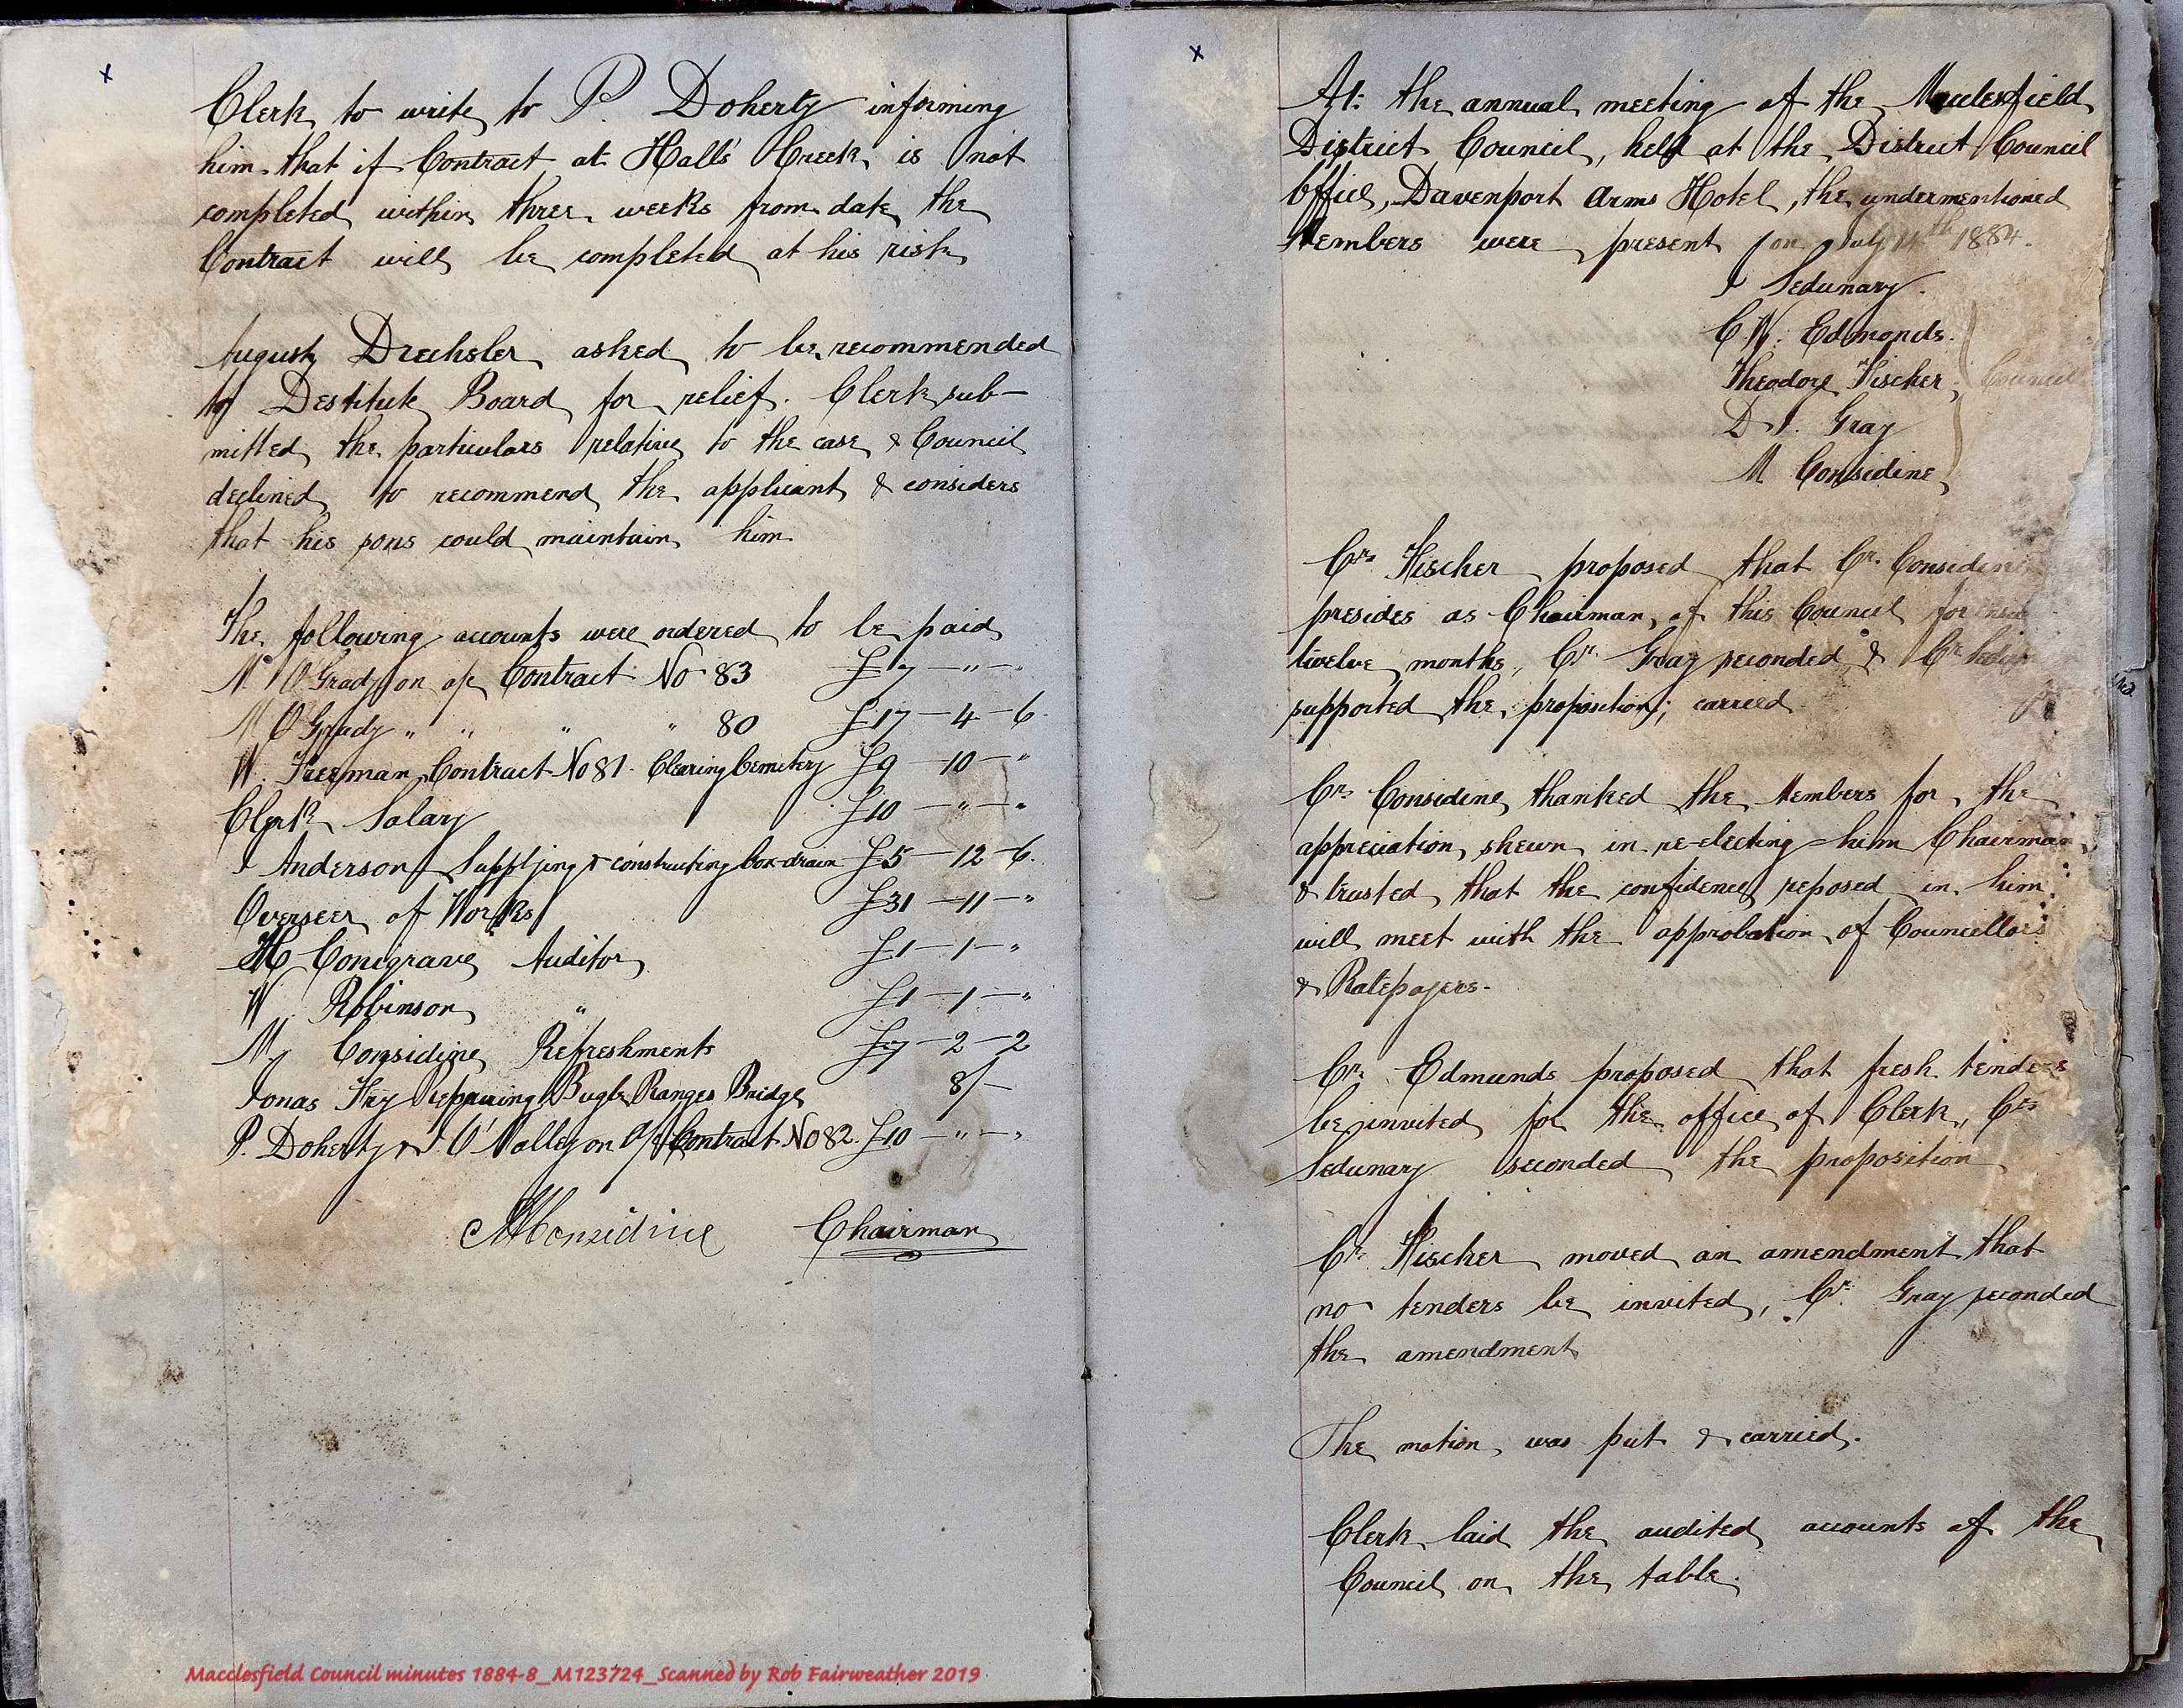 x
Clerk to write to P. Doherty informing
him that if Contract at Halls' Creek is not
completed within three weeks from date the
Contract will be completed at his risk
August Drechsler asked to be recommended
to Destitute Board for relief. Clerk sub-
mitted the particulars relative to the case & Council
declined to recommend the applicant & considers
that his sons could maintain him.
The following accounts were ordered to be paid
M O'Grady on a/c Contract No 83 £7 — " — "
M O'Grady " " " " 80 £17 — 4 — 6
W. Freeman Contract No 81. Clearing Cemetery £9 — 10 — "
Clerk Salary £10 — " — "
J Anderson Supplying & constructing box-drain £5 — 12 — 6.
Overseer of Works £31 — 11 — "
H Conigrave Auditor £1 — 1 — "
W Robinson " £1 — 1 — "
M Considine Refreshments £7 — 2 — 2
Jonas Fry Repairing Bugle Ranges Bridge 8/-
P. Doherty & J O'Malley on a/c Contract No 82. £10 — " — "
M Considine Chairman
x
At the annual meeting of the Macclesfield
District Council, held at the District Council
Office, Davenport Arms Hotel, the undermentioned
Members were present on July 14th 1884.
J Sedunary.
C. W. Edmonds.
Theodore Fischer Council
D. J. Gray
M Considine
Crs Fischer proposed that Cr. Considine
presides as Chairman of this Council for
twelve months, Cr. Gray seconded & Cr
supported the proposition; carried
Crs Considine thanked the Members for the
appreciation shewn in re-electing him Chairman,
& trusted that the confidence reposed in him
will meet with the approbation of Councellors
& Ratepayers.
Crs. Edmunds proposed that fresh tenders
be invited for the office of Clerk, Crs
Sedunary seconded the proposition
Cr. Fischer moved an amendment that
no tenders be invited, Cr. Gray seconded
the amendment
The motion was put & carried.
Clerk laid the audited accounts of the
Council on the table.
Macclesfield Council minutes 1884-8_M123724_Scanned by Rob Fairweather 2019